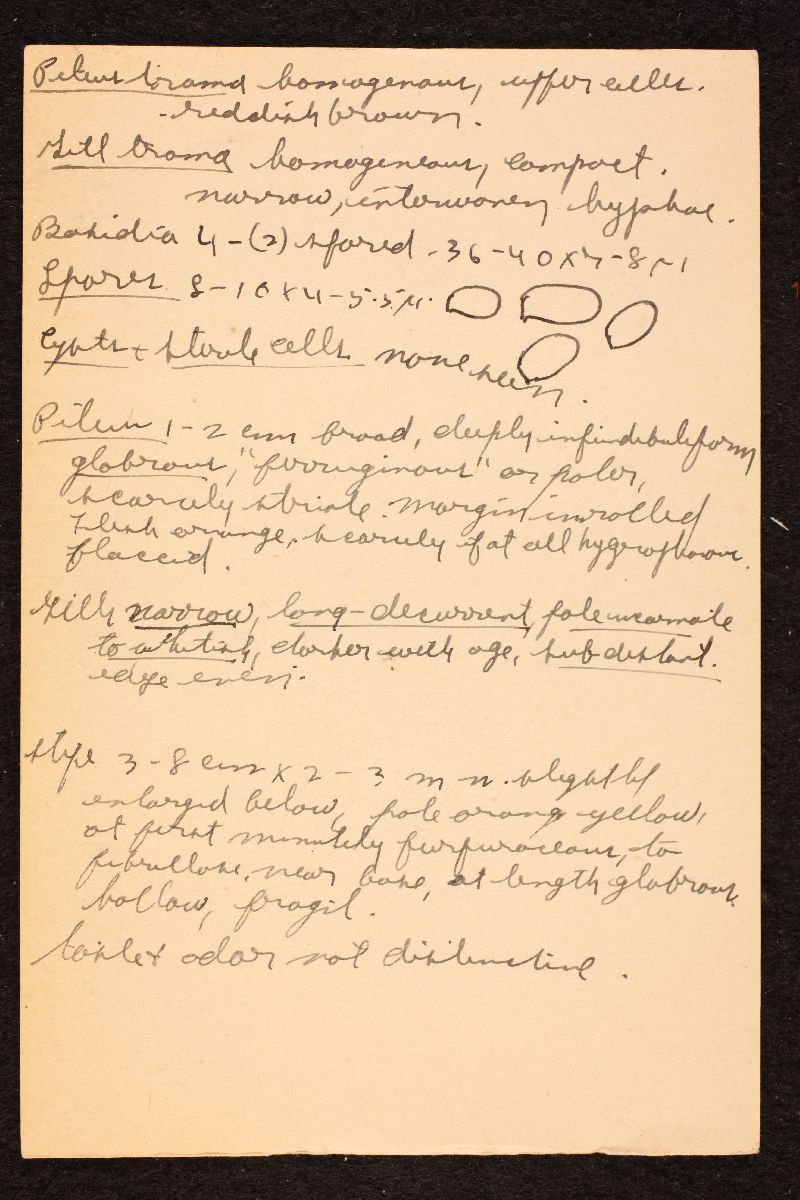 Pileus trama homogenous, upper cells.
reddish brown.
Gill trama homogeneous, compact.
narrow, interwoven hyphae.
Basidia 4-(2) spored. 36-40 x 7-8 µ
Spores 8-10 x 4-5.5 µ.
Cysts + sterile cells none seen.
Pileus 1-2 cm broad, deeply infundibuliform
glabrous, "ferruginous" or paler,
scarcely striate. margin inrolled
flesh orange, scarcely if at all hygrophanous.
flaccid.
Gills narrow, long-decurrent, pale incarnate
to whitish, darker with age, subdistant.
edge even.
Stipe 3-8 cm x 2-3 mm. slightly
enlarged below, pale orange yellow,
at first minutely furfuraceous, to
fibrillose, near base, at length glabrous.
hollow, fragil.
taste + odor not distinctive.